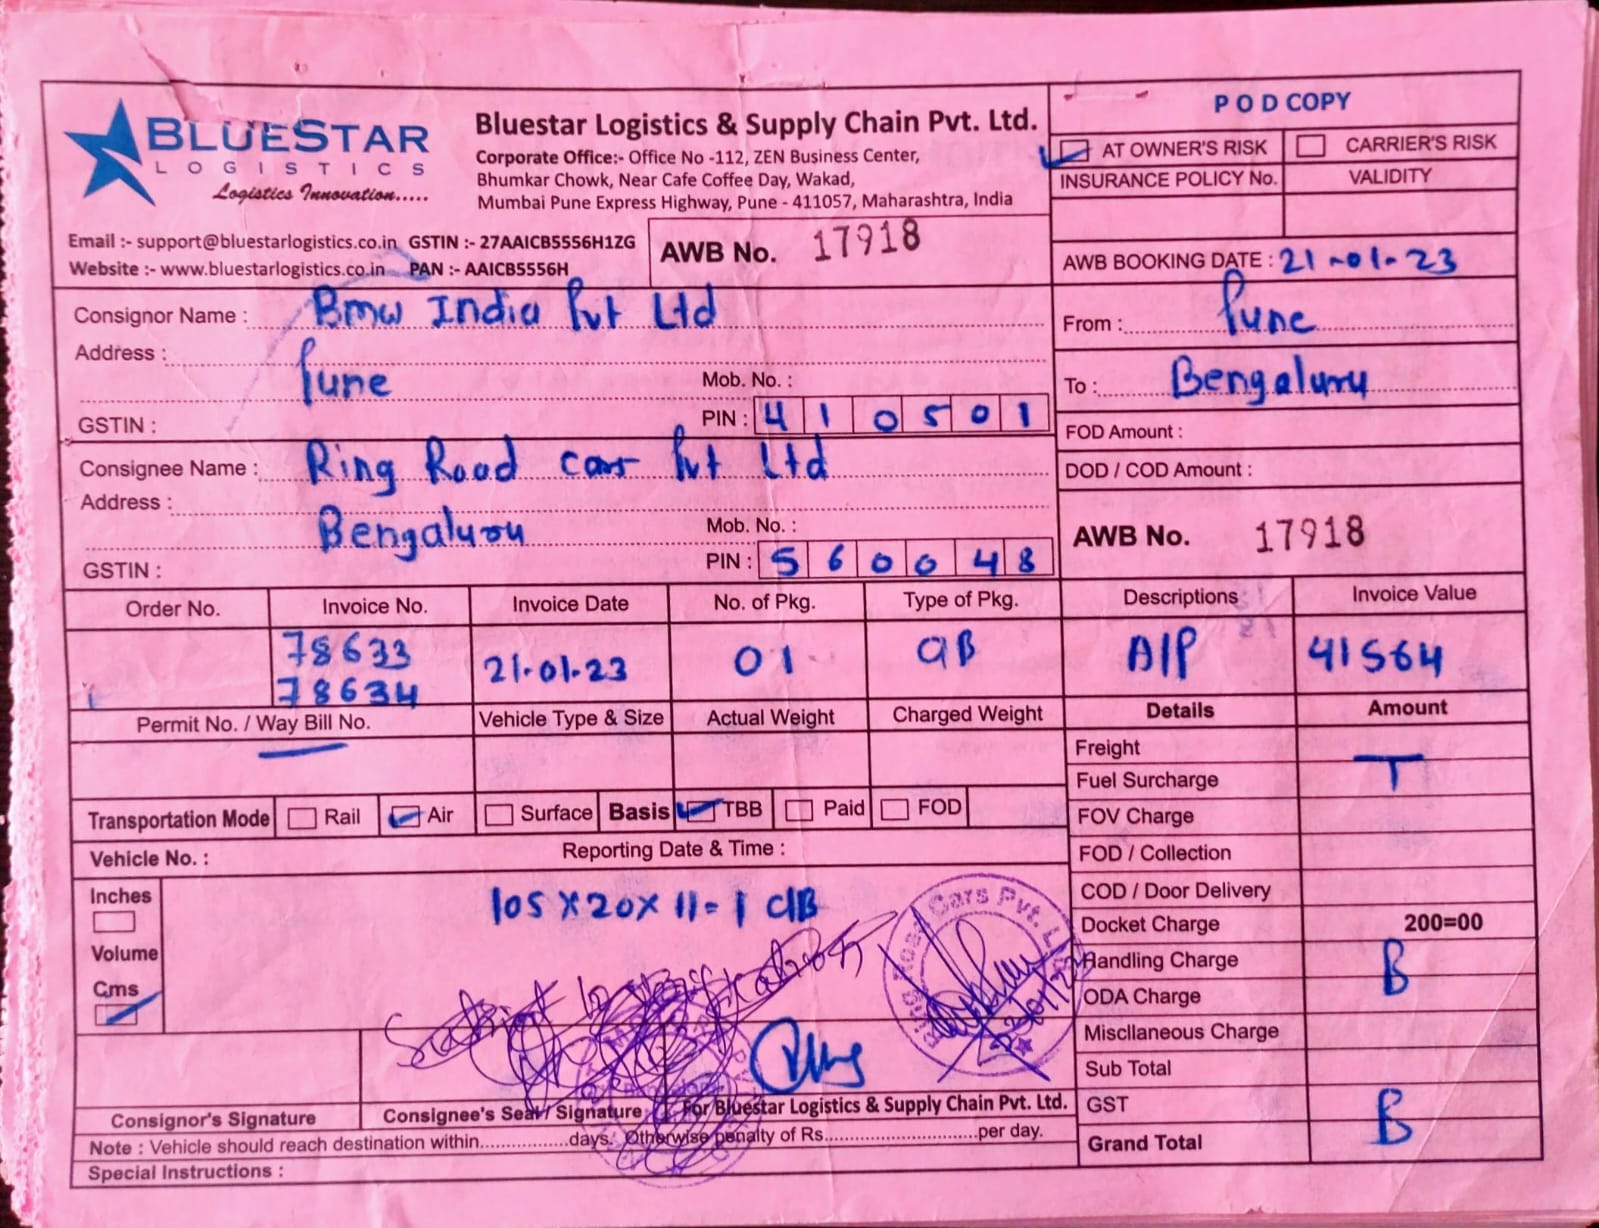 BLUESTAR
LOGISTICS
Logistics Innovation.....
Bluestar Logistics & Supply Chain Pvt. Ltd.
Corporate Office:- Office No -112, ZEN Business Center,
Bhumkar Chowk, Near Cafe Coffee Day, Wakad,
Mumbai Pune Express Highway, Pune - 411057, Maharashtra, India
Email :- support@bluestarlogistics.co.in GSTIN :- 27AAICB5556H1ZG
Website :- www.bluestarlogistics.co.in PAN :- AAICB5556H
AWB No. 17918
POD COPY
AT OWNER'S RISK CARRIER'S RISK
INSURANCE POLICY No. VALIDITY
AWB BOOKING DATE : 21-01-23
Consignor Name : Bmw India Pvt Ltd
Address :
Pune
Mob. No. :
GSTIN :
PIN : 410501
From : Pune
To : Bengaluru
Consignee Name : Ring Road Cars Pvt Ltd
Address :
Bengaluru
Mob. No. :
GSTIN :
PIN : 560048
FOD Amount :
DOD / COD Amount :
AWB No. 17918
Order No. Invoice No. Invoice Date No. of Pkg. Type of Pkg. Descriptions Invoice Value
78633
78634
21-01-23 01 CIB AIP 41564
Permit No. / Way Bill No. Vehicle Type & Size Actual Weight Charged Weight Details Amount
Freight
Fuel Surcharge T
FOV Charge
FOD / Collection
COD / Door Delivery
Docket Charge 200=00
Handling Charge B
ODA Charge
Miscllaneous Charge
Sub Total
GST B
Grand Total
Transportation Mode Rail Air Surface Basis TBB Paid FOD
Vehicle No. : Reporting Date & Time :
Inches
Volume
Cms
105 X 20 X 11 = 1 CIB
Ring Road Cars Pvt. Ltd
Consignor's Signature Consignee's Seal / Signature For Bluestar Logistics & Supply Chain Pvt. Ltd.
Note : Vehicle should reach destination within...............days. Otherwise penalty of Rs..........................per day.
Special Instructions :